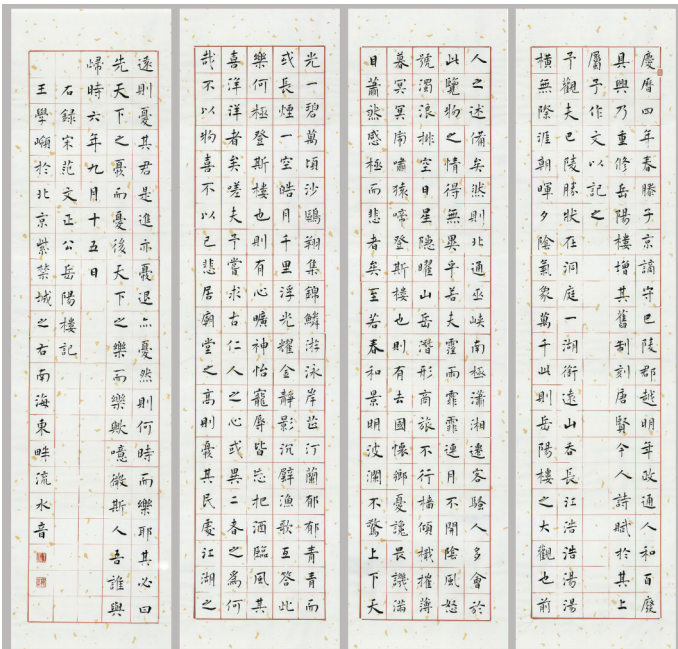 慶曆四年春滕子京謫守巴陵郡越明年政通人和百廢
具興乃重修岳陽樓增其舊制刻唐賢今人詩賦於其上
屬予作文以記之
予觀夫巴陵勝狀在洞庭一湖銜遠山吞長江浩浩湯湯
橫無際涯朝暉夕陰氣象萬千此則岳陽樓之大觀也前
人之述備矣然則北通巫峽南極瀟湘遷客騷人多會於
此覽物之情得無異乎若夫霪雨霏霏連月不開陰風怒
號濁浪排空日星隱曜山岳潛形商旅不行檣傾檝摧薄
暮冥冥虎嘯猿啼登斯樓也則有去國懷鄉憂讒畏譏滿
目蕭然感極而悲者矣至若春和景明波瀾不驚上下天
光一碧萬頃沙鷗翔集錦鱗游泳岸芷汀蘭郁郁青青而
或長煙一空皓月千里浮光耀金靜影沉璧漁歌互答此
樂何極登斯樓也則有心曠神怡寵辱皆忘把酒臨風其
喜洋洋者矣嗟夫予嘗求古仁人之心或異二者之為何
哉不以物喜不以己悲居廟堂之高則憂其民處江湖之
遠則憂其君是進亦憂退亦憂然則何時而樂耶其必曰
先天下之憂而憂後天下之樂而樂歟噫微斯人吾誰與
歸時六年九月十五日
右錄宋范文正公岳陽樓記
王學嶺於北京紫禁城之右南海東畔流水音